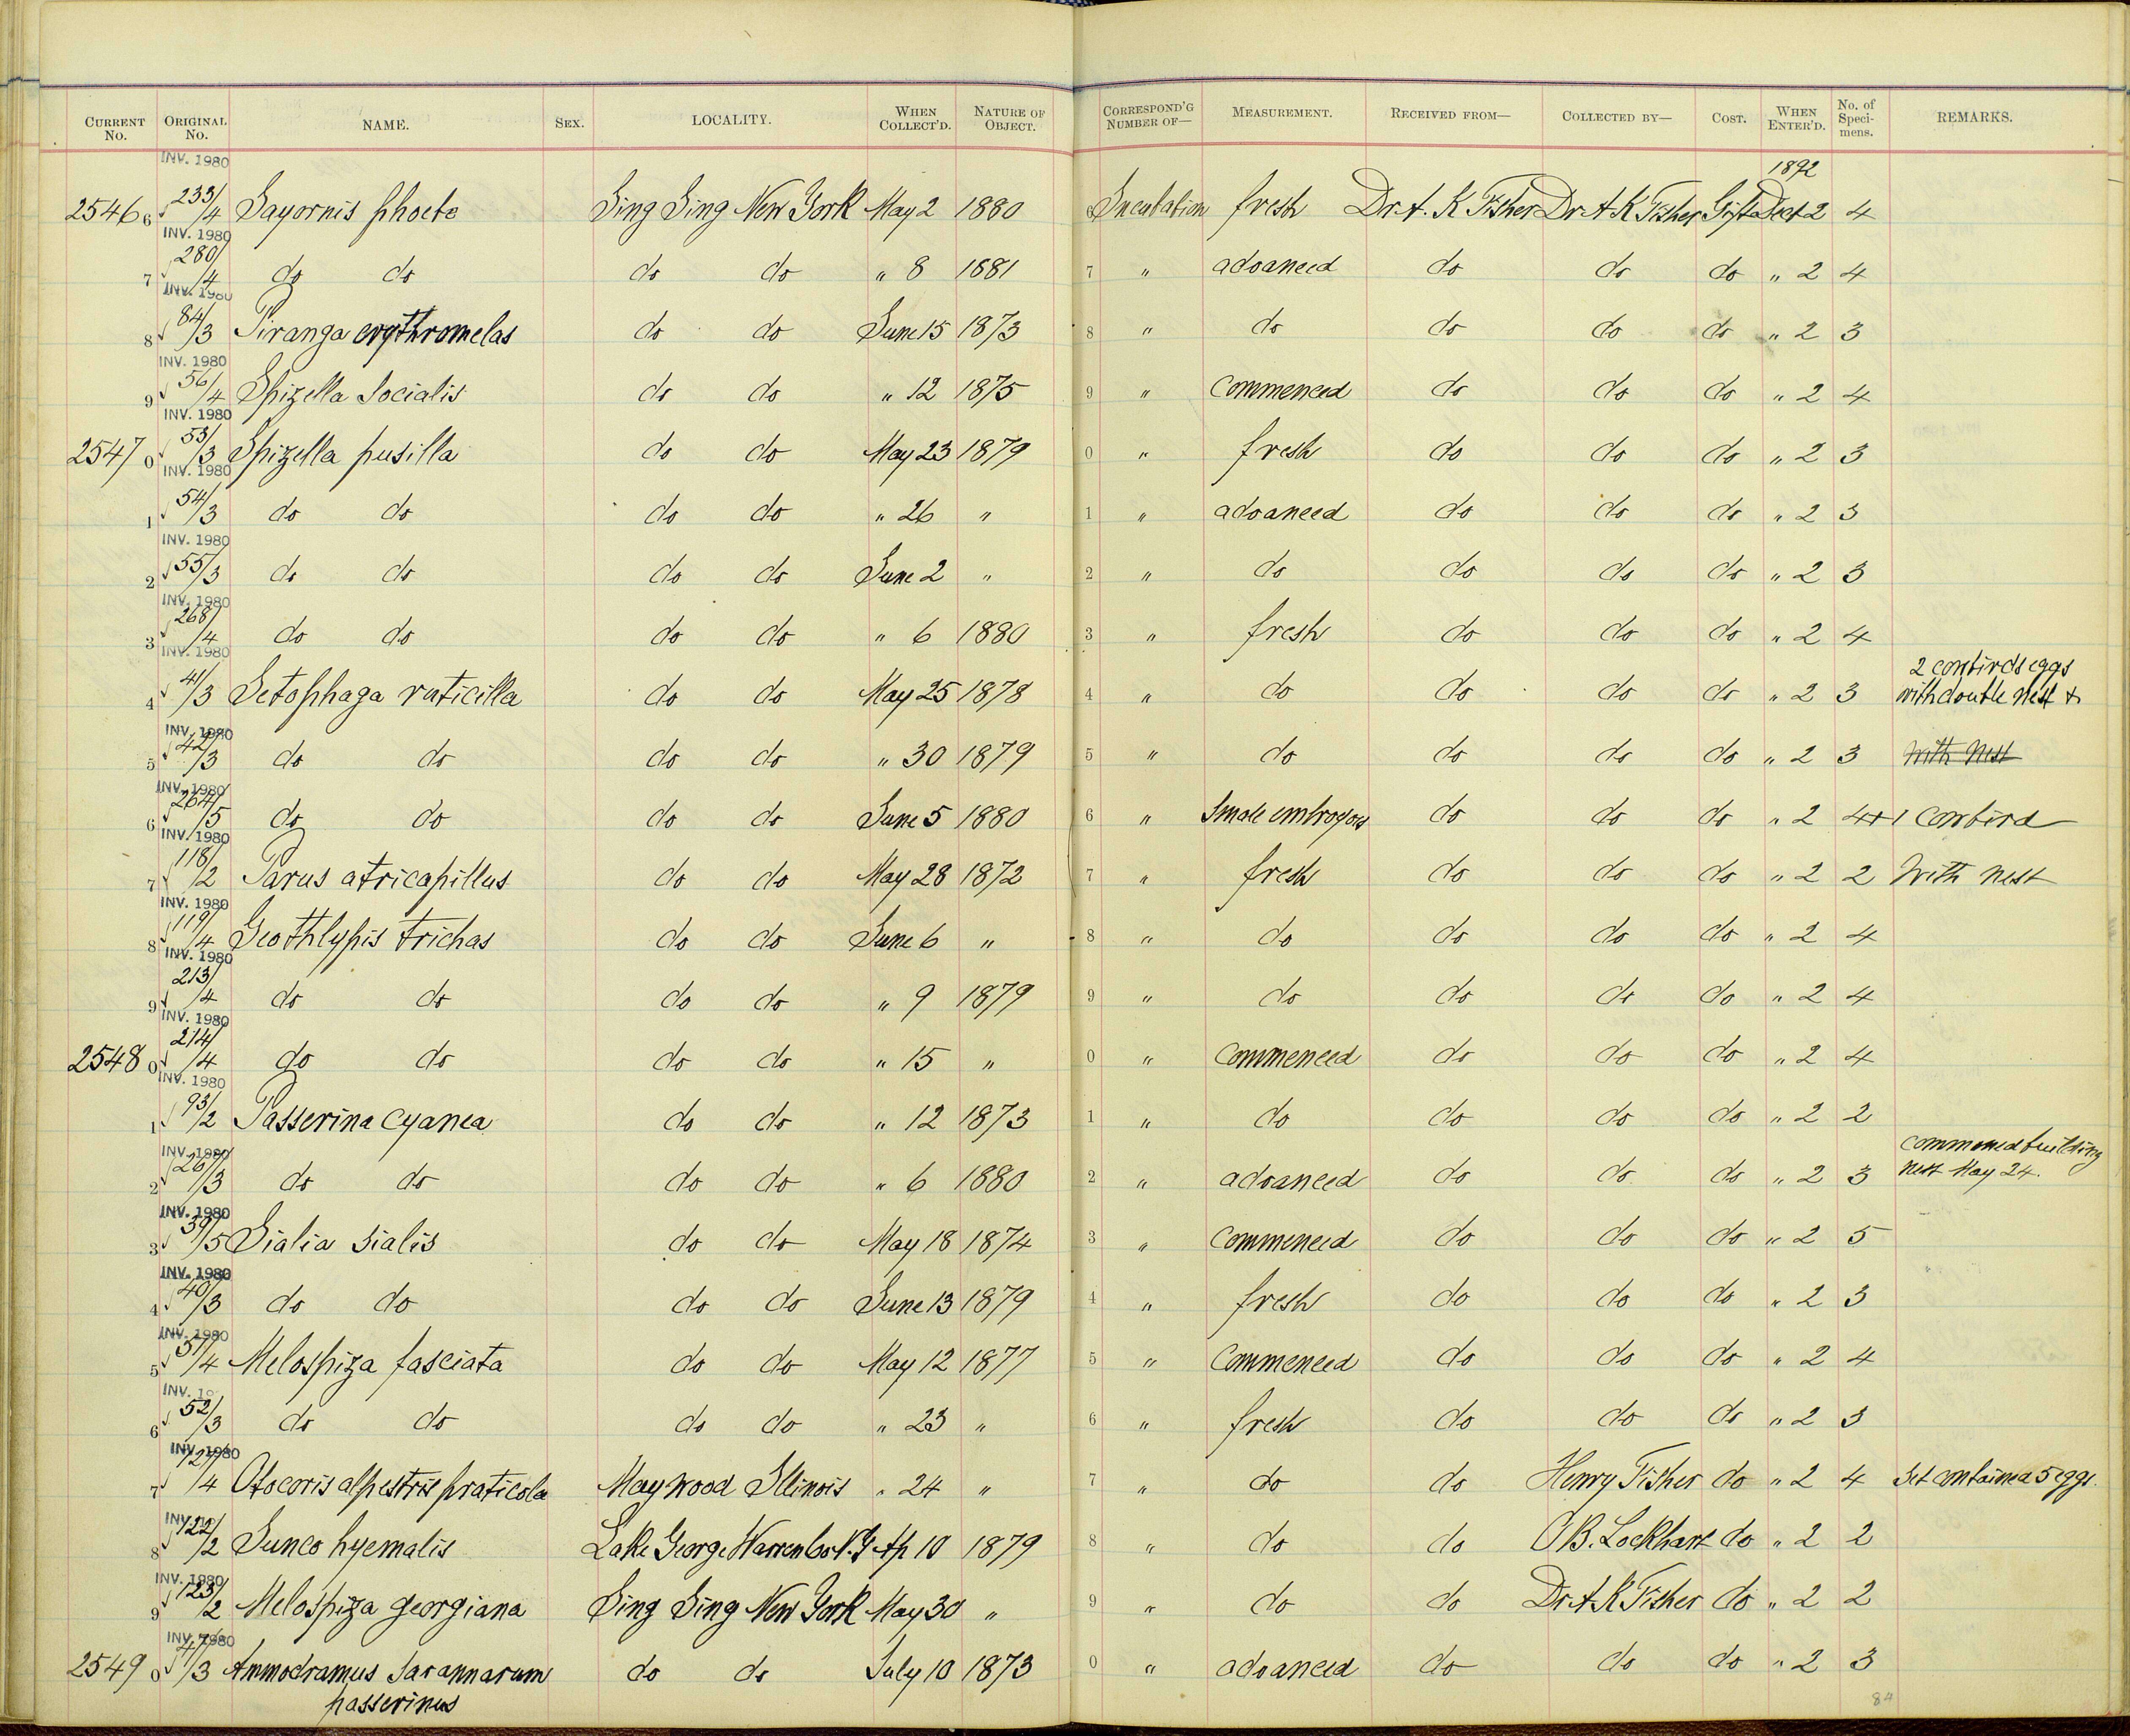 CURRENT No. ORIGINAL No. NAME. SEX. LOCALITY. WHEN COLLECT'D. NATURE OF OBJECT. CORRESPOND'G NUMBER OF— MEASUREMENT. RECEIVED FROM— COLLECTED BY— COST. WHEN ENTER'D. No. of Specimens. REMARKS.
INV. 1980 1892
2546 6 √ 233/4 Sayornis phoebe Sing Sing New York May 2 1880 6 Incubation fresh Dr A. K Fisher Dr A K Fisher Gift Dec 2 4
INV. 1980
7 √ 280/4 do do do do " 8 1881 7 " advanced do do do " 2 4
INV. 1980
8 √ 84/3 Piranga erythromelas do do June 15 1873 8 " do do do do " 2 3
INV. 1980
9 √ 56/4 Spizella socialis do do " 12 1875 9 " commenced do do do " 2 4
INV. 1980
2547 0 √ 53/3 Spizella pusilla do do May 23 1879 0 " fresh do do do " 2 3
INV. 1980
1 √ 54/3 do do do do " 26 " 1 " advanced do do do " 2 3
INV. 1980
2 √ 55/3 do do do do June 2 " 2 " do do do do " 2 3
INV. 1980
3 √ 268/4 do do do do " 6 1880 3 " fresh do do do " 2 4
INV. 1980 2 conbirds eggs
4 √ 41/3 Setophaga ruticilla do do May 25 1878 4 " do do do do " 2 3 with double nest &
INV. 1980
5 √ 42/3 do do do do " 30 1879 5 " do do do do " 2 3 with nest
INV. 1980
6 √ 264/5 do do do do June 5 1880 6 " Small embryos do do do " 2 4+1 cowbird
INV. 1980
7 √ 118/2 Parus atricapillus do do May 28 1872 7 " fresh do do do " 2 2 With nest
INV. 1980
8 √ 119/4 Geothlypis trichas do do June 6 " 8 " do do do do " 2 4
INV. 1980
9 √ 213/4 do do do do " 9 1879 9 " do do do do " 2 4
INV. 1980
2548 0 √ 214/4 do do do do " 15 " 0 " commenced do do do " 2 4
INV. 1980
1 √ 93/2 Passerina cyanea do do " 12 1873 1 " do do do do " 2 2
INV. 1980 commenced building
2 √ 267/3 do do do do " 6 1880 2 " advanced do do do " 2 3 nest May 24.
INV. 1980
3 √ 39/5 Sialia sialis do do May 18 1874 3 " commenced do do do " 2 5
INV. 1980
4 √ 40/3 do do do do June 13 1879 4 " fresh do do do " 2 3
INV. 1980
5 √ 51/4 Melospiza fasciata do do May 12 1877 5 " Commenced do do do " 2 4
INV. 19
6 √ 52/3 do do do do " 23 " 6 " fresh do do do " 2 3
INV. 1980
7 √ /4 Otocoris alpestris praticola Maywood Illinois " 24 " 7 " do do Henry Fisher do " 2 4 Set contained 5 eggs.
INV.
8 √ 122/2 Junco hyemalis Lake George Warren Co N.Y Ap 10 1879 8 " do do C B. Lockhart do " 2 2
INV. 1980
9 √ 123/2 Melospiza georgiana Sing Sing New York May 30 " 9 " do do Dr A K Fisher do " 2 2
INV. 1980
2549 0 √ /3 Ammodramus savannarum do do July 10 1873 0 " advanced do do do " 2 3
passerinus
84